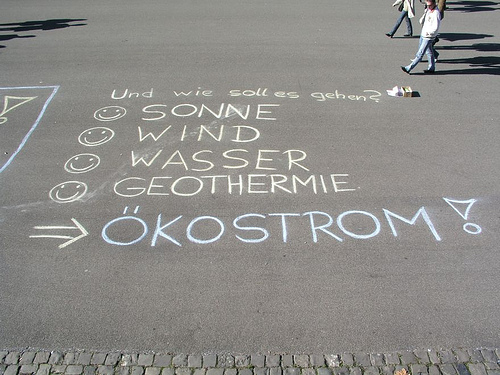 Und wie soll es gehen?
SONNE
WIND
WASSER
GEOTHERMIE
⇒ ÖKOSTROM!